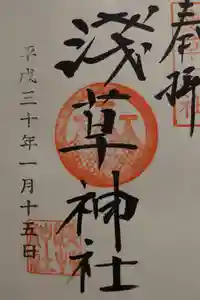 奉拝
浅草神社
平成三十年一月十五日